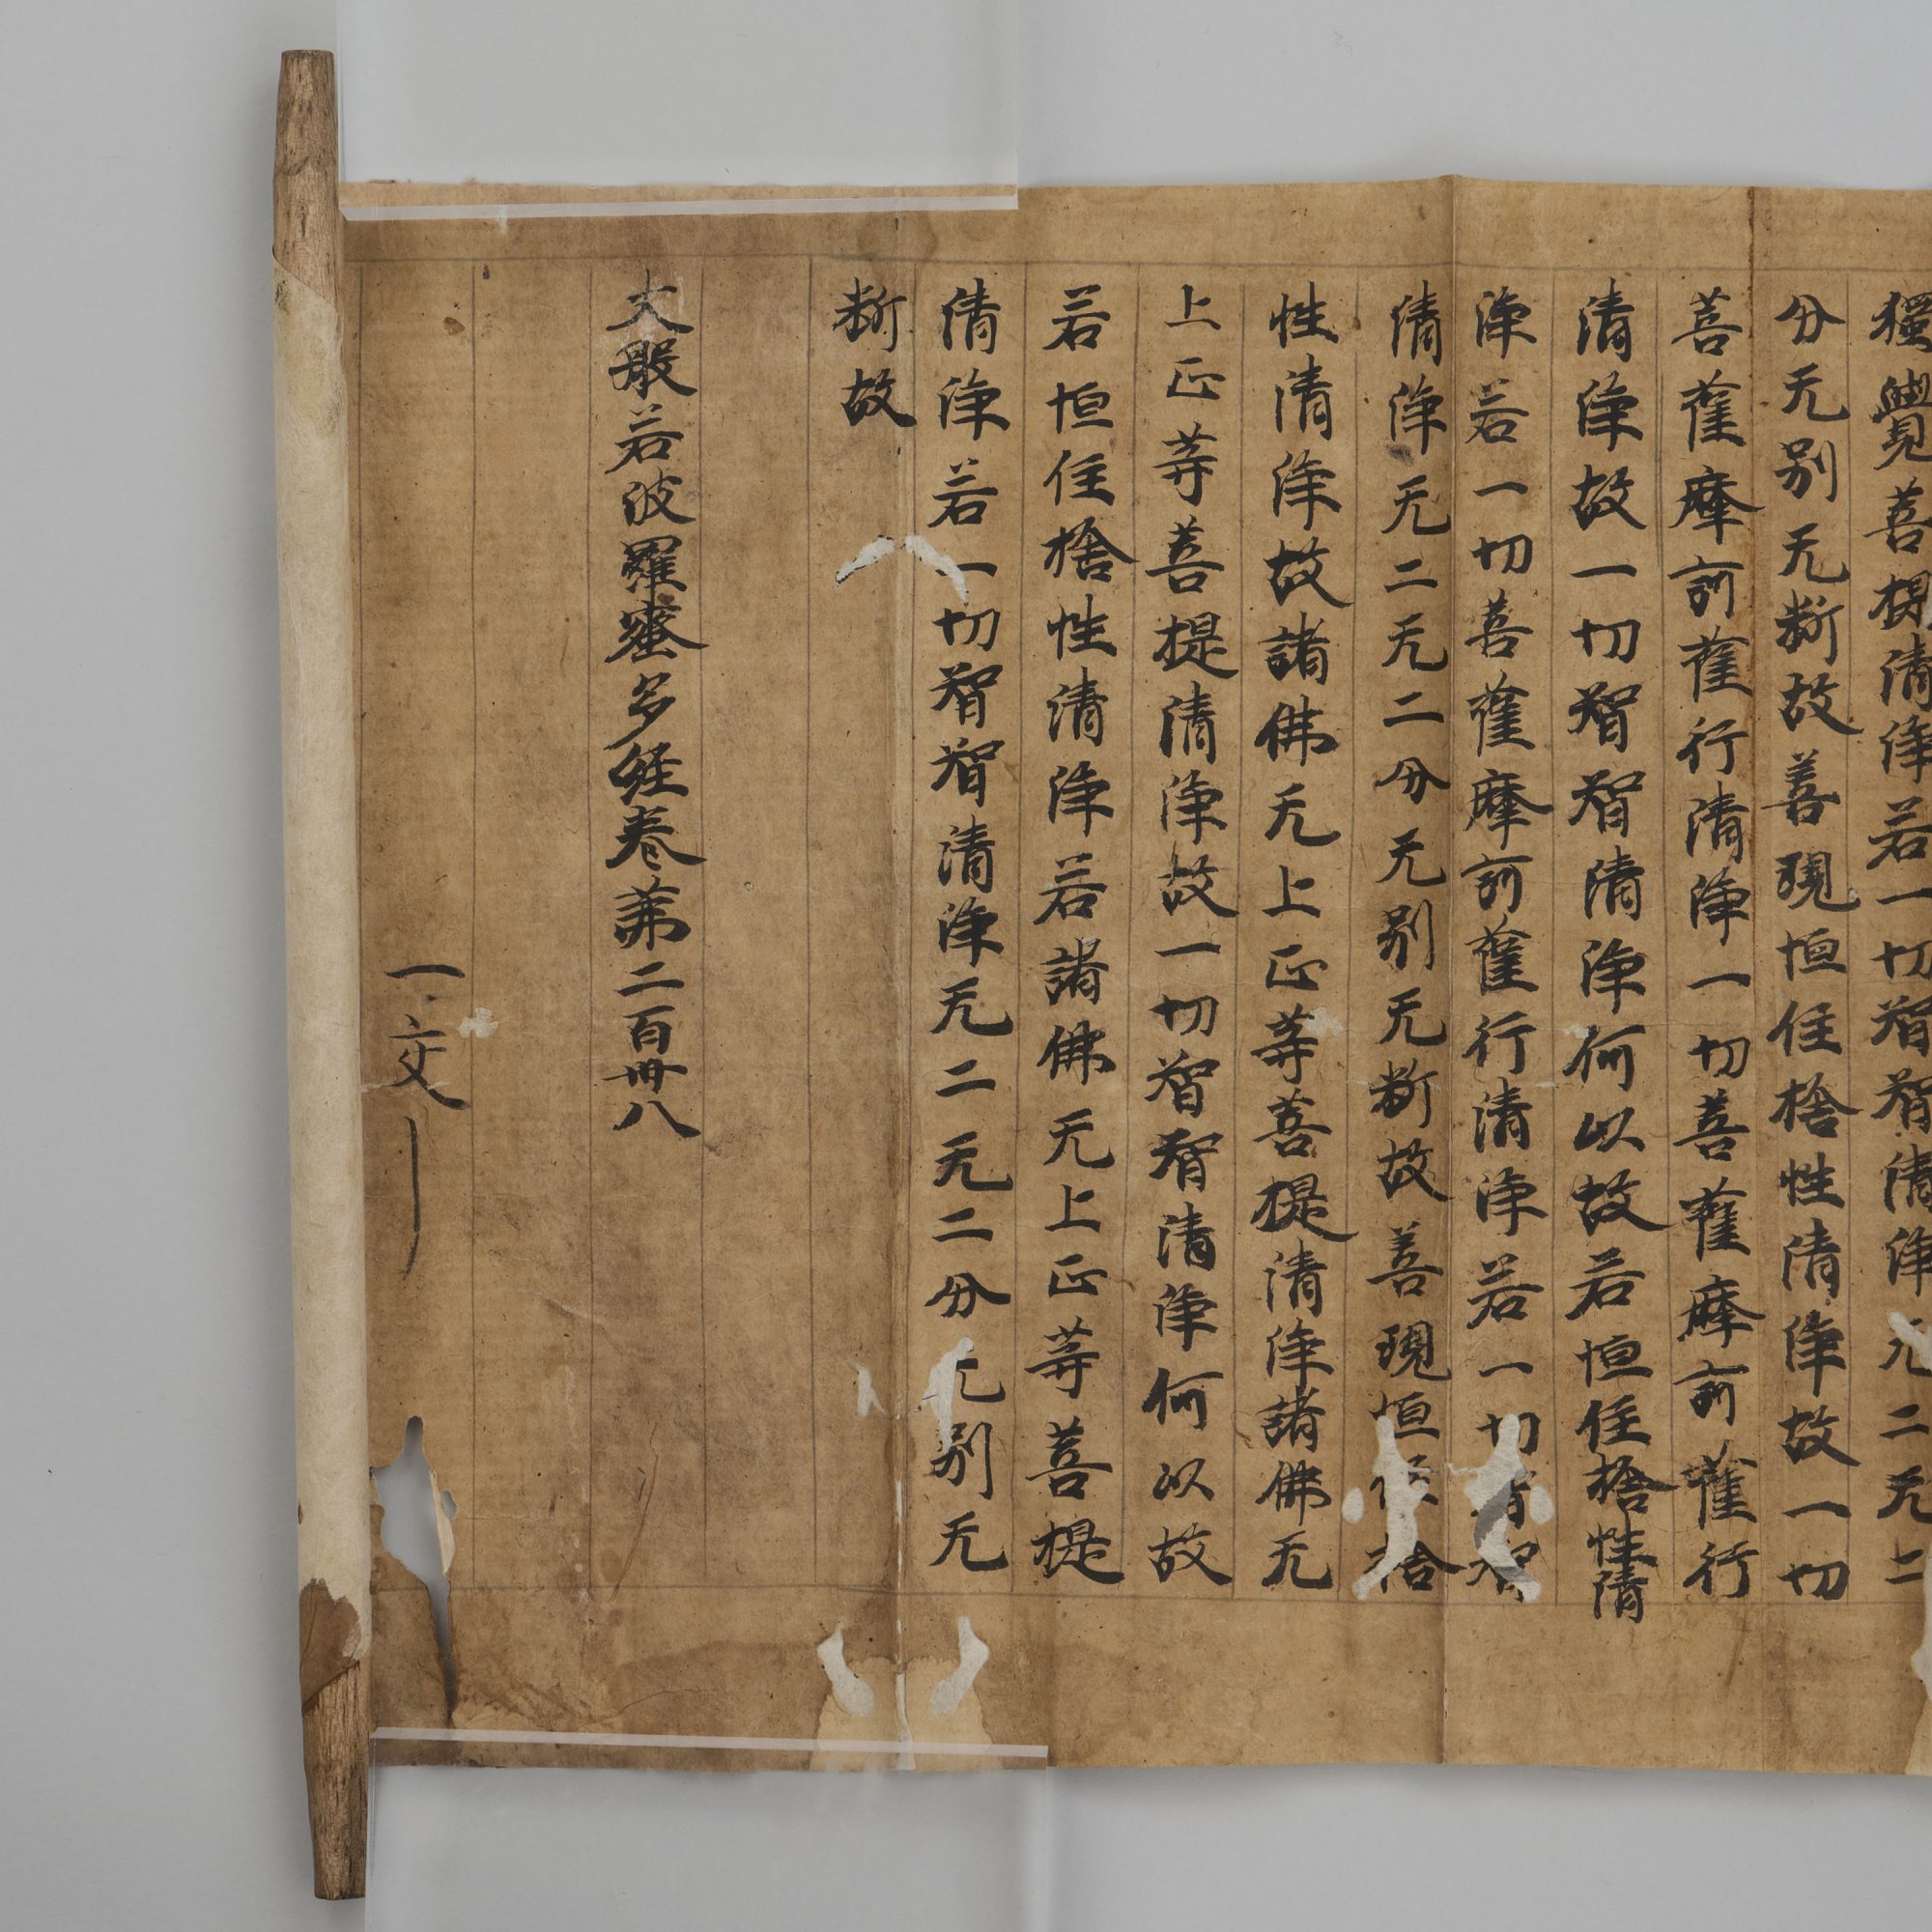 獨覺菩提清淨若一切智智清淨无二无二
分无別无断故善現恒住捨性清淨故一切
菩薩摩訶薩行清淨一切菩薩摩訶薩行
清淨故一切智智清淨何以故若恒住捨性清
淨若一切菩薩摩訶薩行清淨若一切智智
清淨无二无二分无別无断故善現恒住捨
性清淨故諸佛无上正等菩提清淨諸佛无
上正等菩提清淨故一切智智清淨何以故
若恒住捨性清淨若諸佛无上正等菩提
清淨若一切智智清淨无二无二分无別无
断故
大般若波羅蜜多経巻第二百卌八
一交